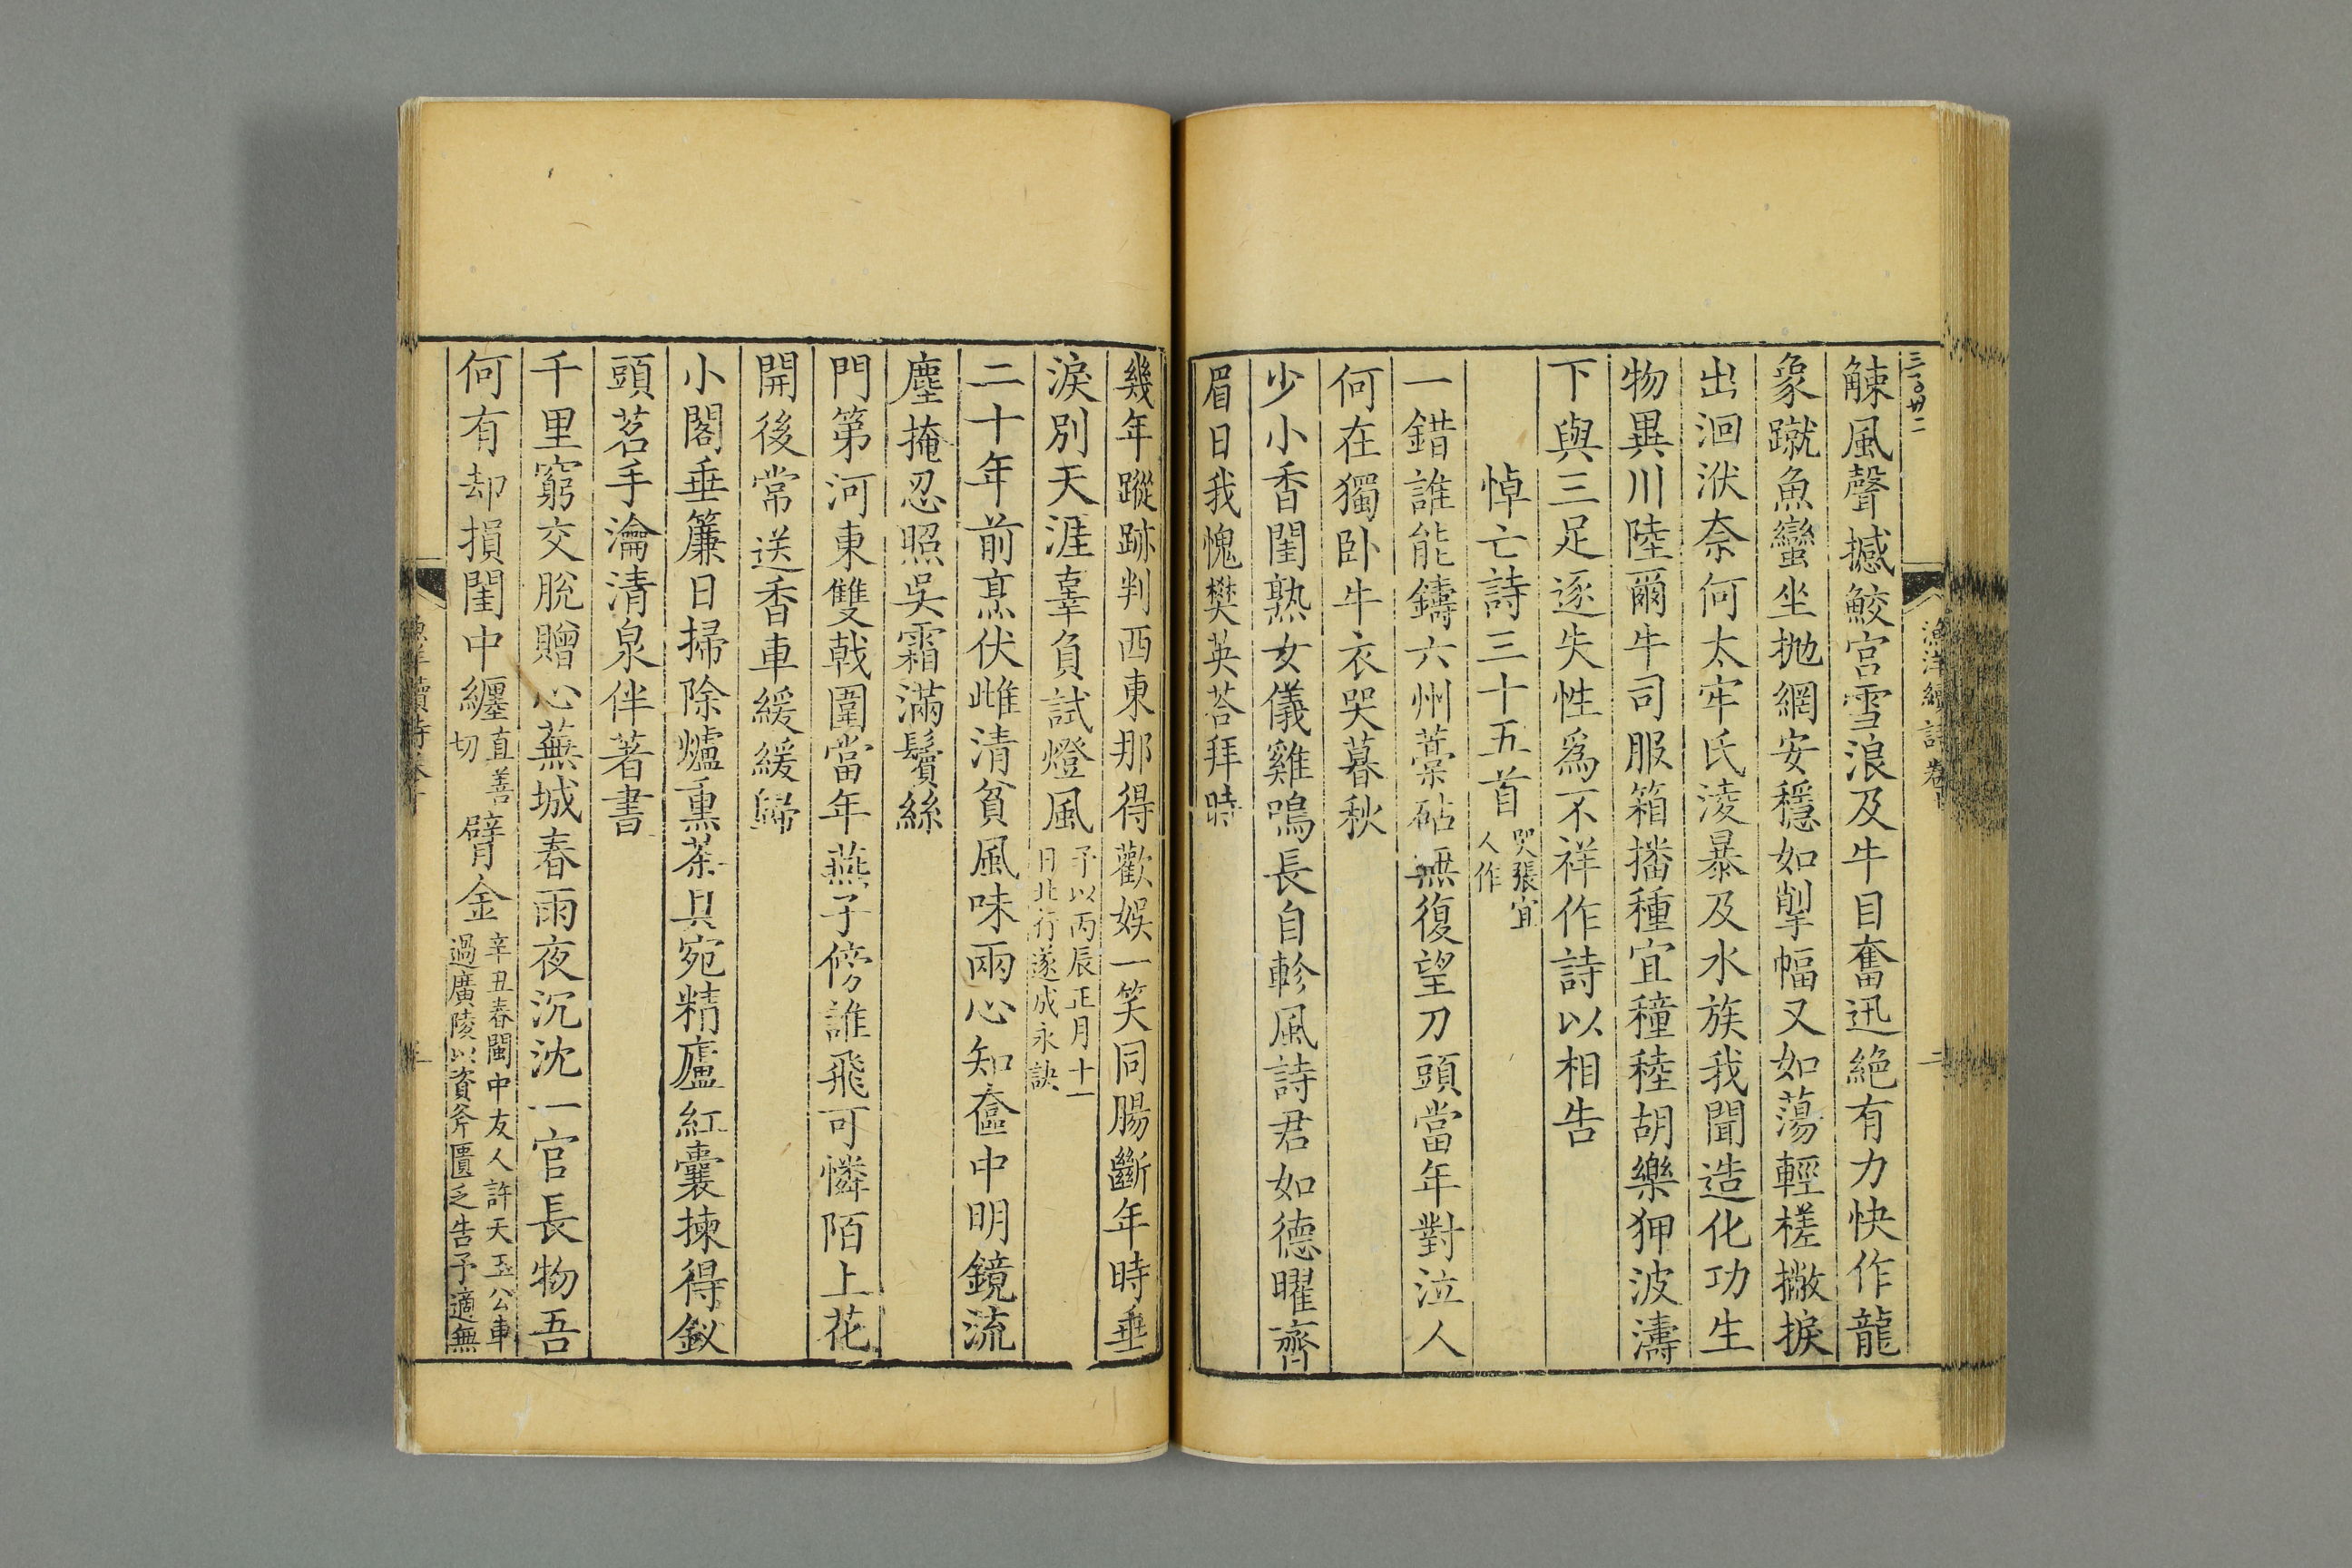 三百卅二
觫風聲撼鮫宮雪浪及牛目奮迅絕有力快作龍
象蹴魚蠻坐拋網安穩如掣幅又如蕩輕槎撇捩
出洄洑奈何太牢氏淩暴及水族我聞造化功生
物異川陸爾牛司服箱播種宜穜稑胡樂狎波濤
下與三足逐失性爲不祥作詩以相告
悼亡詩三十五首
哭張宜
人作
一錯誰能鑄六州藁砧無復望刀頭當年對泣人
何在獨卧牛衣哭暮秋
少小香閨熟女儀雞鳴長自軫風詩君如德曜齊
眉日我愧樊英荅拜時
漁洋續詩卷
二
幾年蹤跡判西東那得歡娛一笑同腸斷年時垂
淚別天涯辜負試燈風
予以丙辰正月十一
日北行遂成永訣
二十年前烹伏雌清貧風味兩心知奩中明鏡流
塵掩忍照吳霜滿鬢絲
門第河東雙戟圍當年燕子傍誰飛可憐陌上花
開後常送香車緩緩歸
小閣垂簾日掃除爐熏茶具宛精廬紅囊揀得釵
頭茗手瀹清泉伴著書
千里窮交脫贈心蕪城春雨夜沉沈一官長物吾
何有却損閨中纏
直善
切
臂金
辛丑春閩中友人許天玉公車
過廣陵以資斧匱乏告予適無